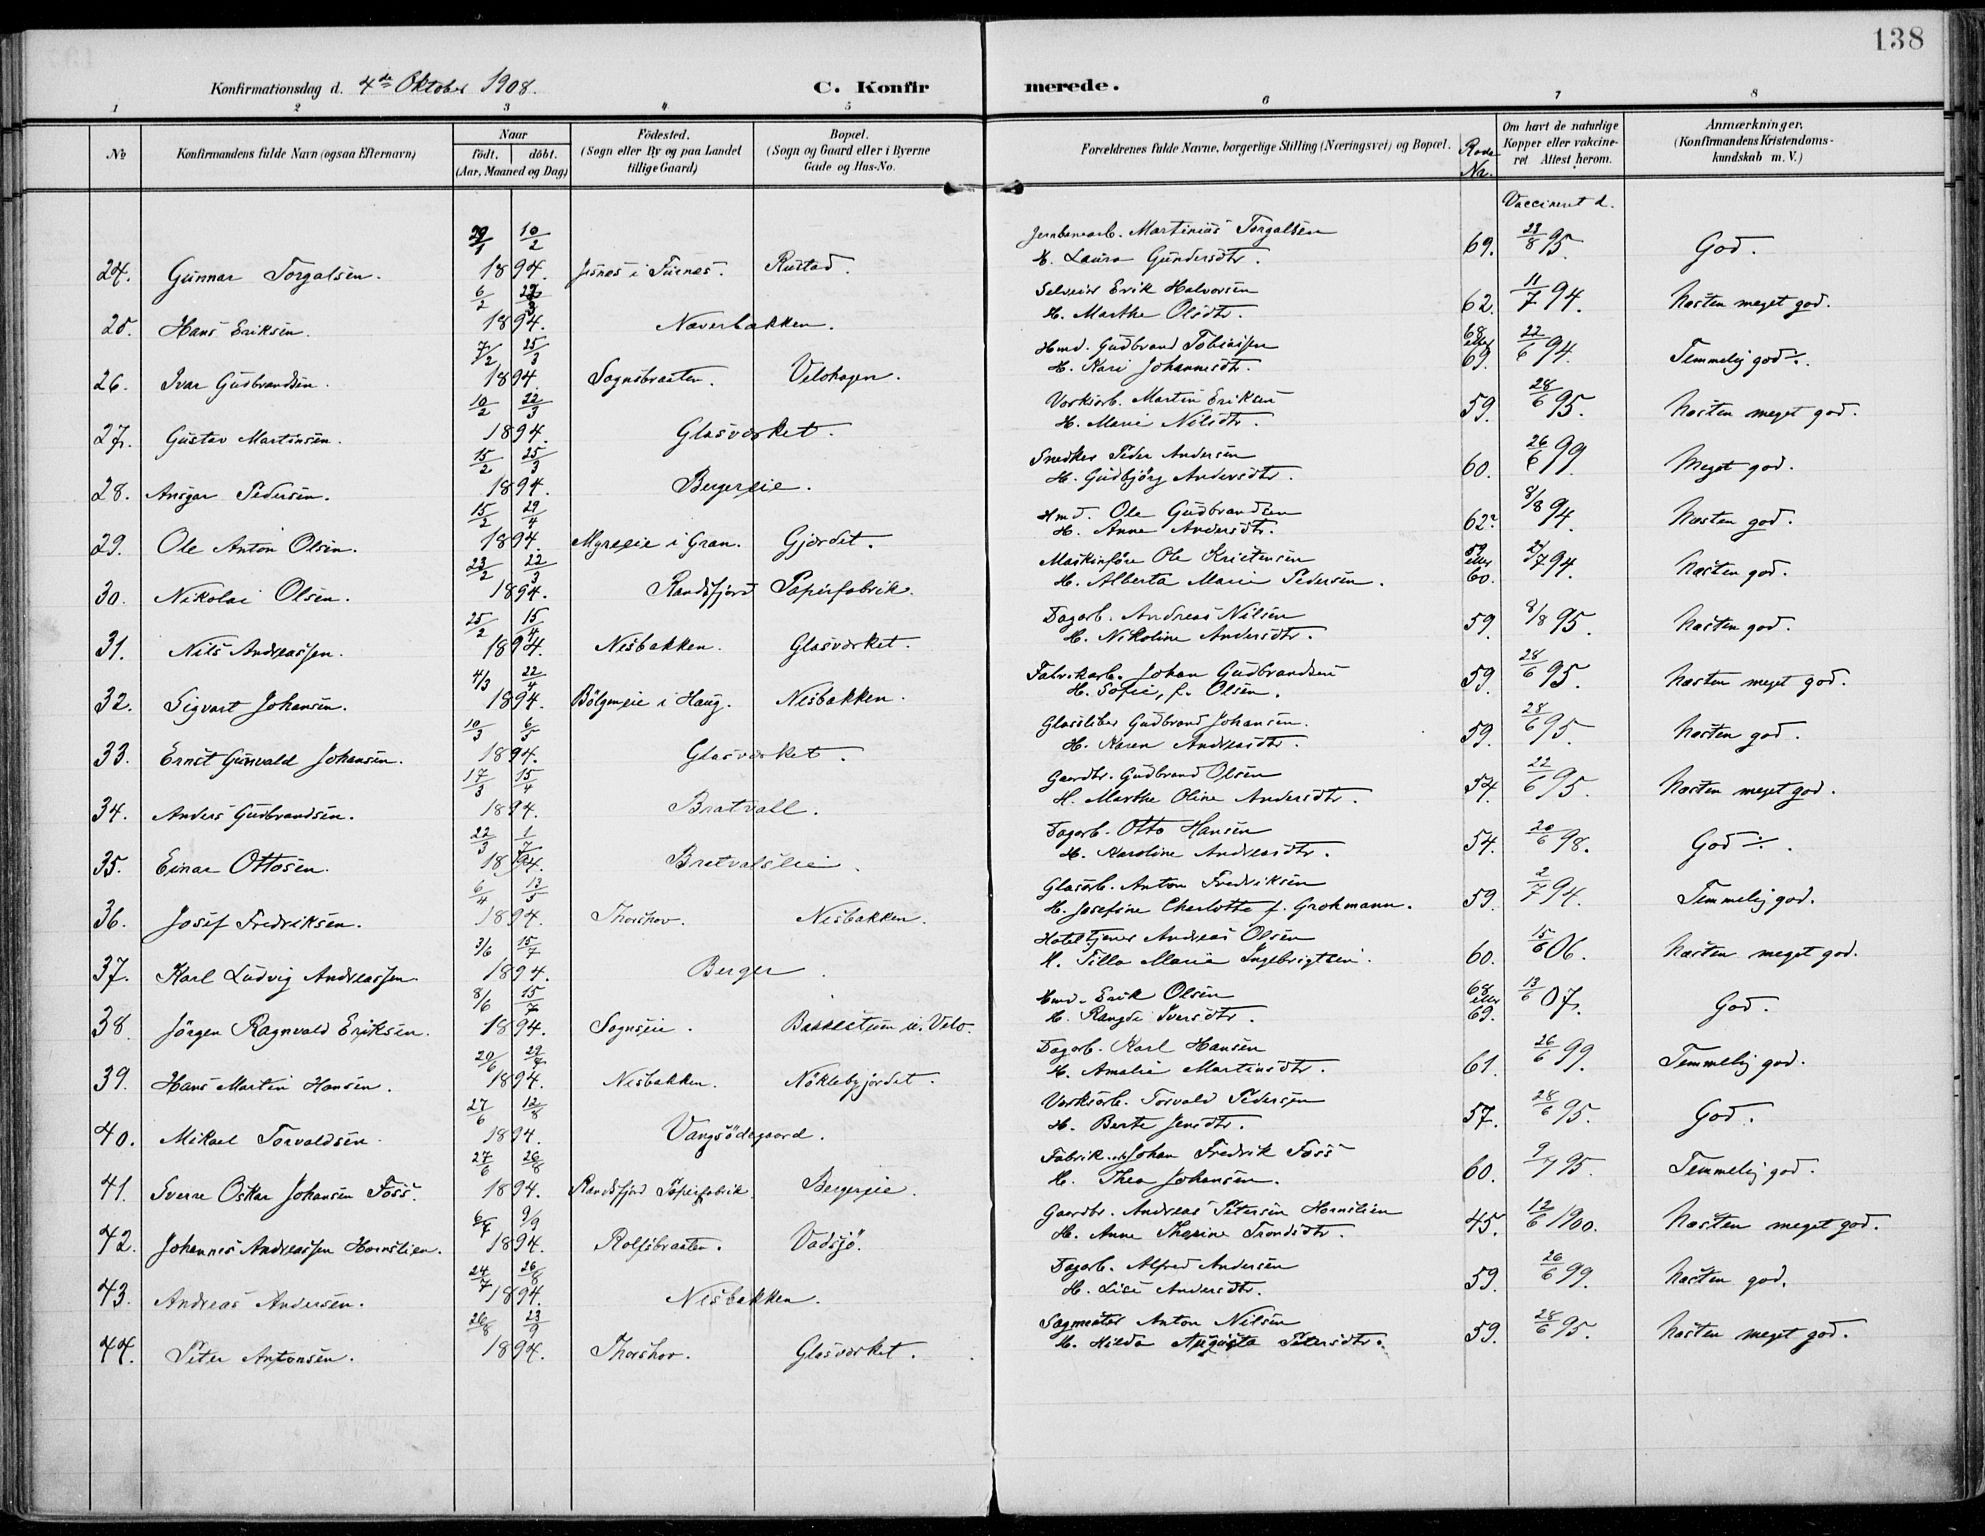 138
Konfirmationsdag d. 4de Oktober 1908. C. Konfirmerede.
1 2 3 4 5 6 7 8
No Konfirmandens fulde Navn (ogsaa Efternavn) Naar födt. döbt. (Aar, Maaned og Dag) Födested. (Sogn eller By og paa Landet tillige Gaard) Bopæl. (Sogn og Gaard eller i Byerne Gade og Hus-No. Forældrenes fulde Navne, borgerlige Stilling (Næringsvei) og Bopæl. Rode No. Om havt de naturlige Kopper eller vakcineret Attest herom. Anmærkninger, (Konfirmandens Kristendomskundskab m. V.)
Vaccineret d.
29/1 10/2 Jernbanearb. Martinius Torgalsen
24. Gunnar Torgalsen. 1894. Jesnes i Furnes. Rustad. H. Laura Gundersdtr. 69. 23/8 95. God.
6/2 Selveier Erik Halvorsen
25. Hans Eriksen. 1894. Næverbakken. H. Marthe Olsdtr. 62. 11/7 94. Næsten meget god.
7/2 25/3 Hmd. Gudbrand Tobiassen
26. Ivar Gudbrandsen. 1894. Sognsbraaten. Velohagen. H. Kari Johannesdtr. 68 eller 69. 22/6 94. Temmelig god ÷.
10/2 22/3 Værksarb. Martin Eriksen
27. Gustav Martinsen. 1894. Glasværket. H. Marie Nilsdtr. 59. 28/6 95. Næsten meget god.
15/2 25/3 Snedker Peder Andersen
28. Ansgar Pedersen. 1894. Bergereie. H. Gudbjörg Andersdtr. 60. 26/6 99. Meget god.
15/2 29/4 Hmd. Ole Gudbrandsen
29. Ole Anton Olsen. 1894. Myreeie i Gran. Gjördet. H. Anne Andersdtr. 62. 8/8 94. Næsten god.
23/2 22/3 Maskinföre Ole Kristensen
30. Nikolai Olsen. 1894. Randsfjord Papirfabrik. H. Alberta Marie Pedersen. 59 eller 60. 2/7 94. Næsten god.
25/2 15/4 Dagarb. Andreas Nilsen
31. Nils Andreassen. 1894. Nesbakken. Glasværket. H. Nikoline Andersdtr. 59. 8/8 95. Næsten god.
4/3 22/4 Fabrikarb. Johan Gudbrandsen
32. Sigvart Johansen. 1894. Bölgeneie i Haug. Nesbakken. H. Sofie, f. Olsen. 59. 28/6 95. Næsten meget god.
10/3 6/5 Glassliber Gudbrand Johansen.
33. Ernst Gunvald Johansen. 1894. Glasværket. H. Karen Andreasdtr. 59. 28/6 95. Næsten god.
17/3 15/4 Gaardbr. Gudbrand Olsen
34. Anders Gudbrandsen. 1894. Bratvall. H. Marthe Oline Andersdtr. 54. 22/6 95. Næsten meget god.
22/3 1/7 Dagarb. Otto Hansen
35. Einar Ottosen. 1894. Bratvalseie. H. Karoline Andreasdtr. 54. 20/6 98. God ÷.
6/4 13/5 Glasarb. Anton Fredriksen
36. Josef Fredriksen. 1894. Thorshov. Nesbakken. H. Josefine Charlotte f. Grohmann. 59. 2/7 94. Temmelig god.
3/6 15/7 Hoteltjener Andreas Olsen
37. Karl Ludvig Andreassen. 1894. Berger. H. Tilla Marie Ingebrigtsen. 60. 15/6 06. Næsten meget god.
8/6 15/7 Hmd. Erik Olsen
38. Jörgen Ragnvald Eriksen. 1894. Sognseie. Bakkestuen u. Velo. H. Rangdi Iversdtr. 68 eller 69. 13/6 07. God.
20/6 29/7 Dagarb. Karl Hansen
39. Hans Martin Hansen. 1894. Nesbakken. Nöklebyjordet. H. Amalie Martinsdtr. 61. 26/6 99. Temmelig god.
27/6 12/8 Værksarb. Torvald Pedersen
40. Mikael Torvaldsen. 1894. Vangsödegaard. H. Berte Jensdtr. 57. 28/6 95. God.
27/6 26/8 Fabrik.arb Johan Fredrik Foss
41. Sverre Oskar Johansen Foss. 1894. Randsfjord Papirfabrik. Bergereie. H. Thea Johansen. 60. 9/7 95. Temmelig god.
6/7 9/9 Gaardbr. Andreas Petersen Hornslien
42. Johannes Andreassen Hornslien. 1894. Rolfsbraaten. Vadsjö. H. Anne Thorine Trondsdtr. 45. 12/6 1900. Næsten meget god.
24/7 26/8 Dagarb. Alfred Andersen
43. Andreas Andersen. 1894. Nesbakken. H. Lise Andersdtr. 59. 26/6 99. Næsten god.
26/8 23/9 Sagmester Anton Nilsen
44. Peter Antonsen. 1894. Thorshov. Glasværket. H. Hilda Augusta Petersdtr. 59. 28/6 95. Næsten meget god.